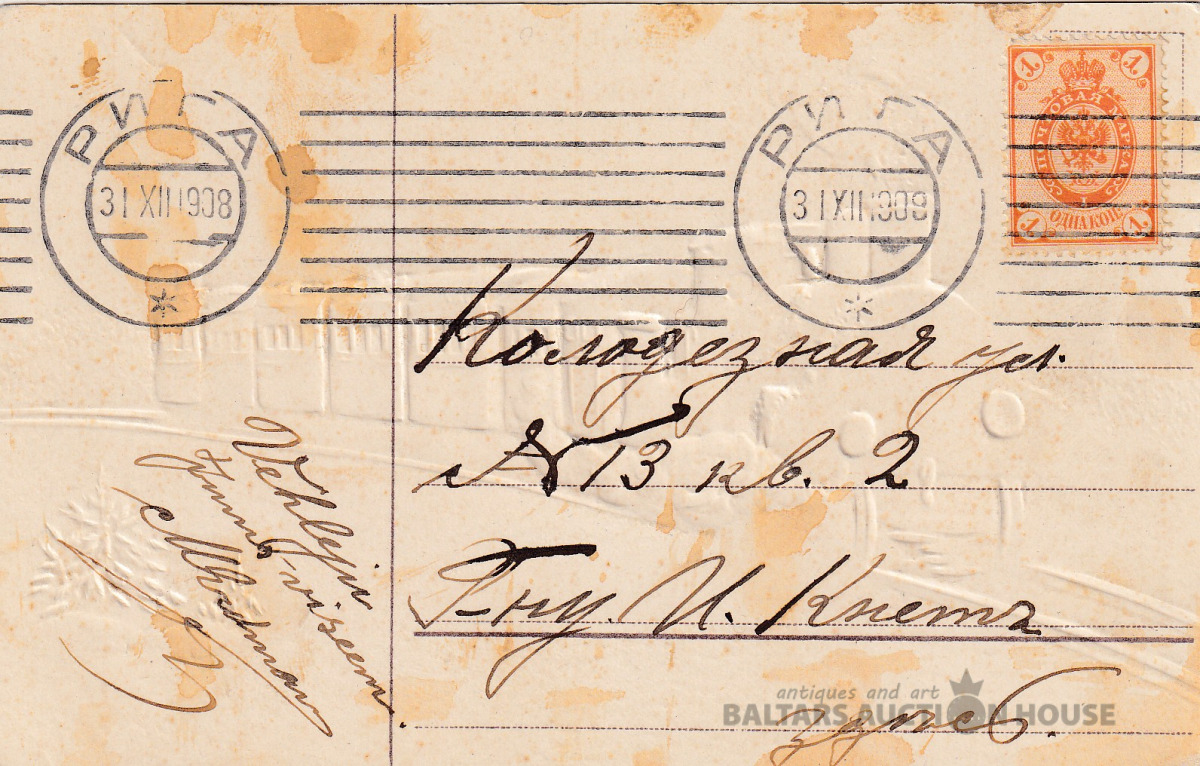 РИГА
31 XII 1908
РИГА
31 XII 1908
1
1
ПОЧТОВАЯ МАРКА
ОДНА КОП.
1
1
Колодезная ул.
№ 13 кв. 2
Г-ну. И. Кнетъ
здѣсь.
antiques and art
BALTARS AUCTION HOUSE